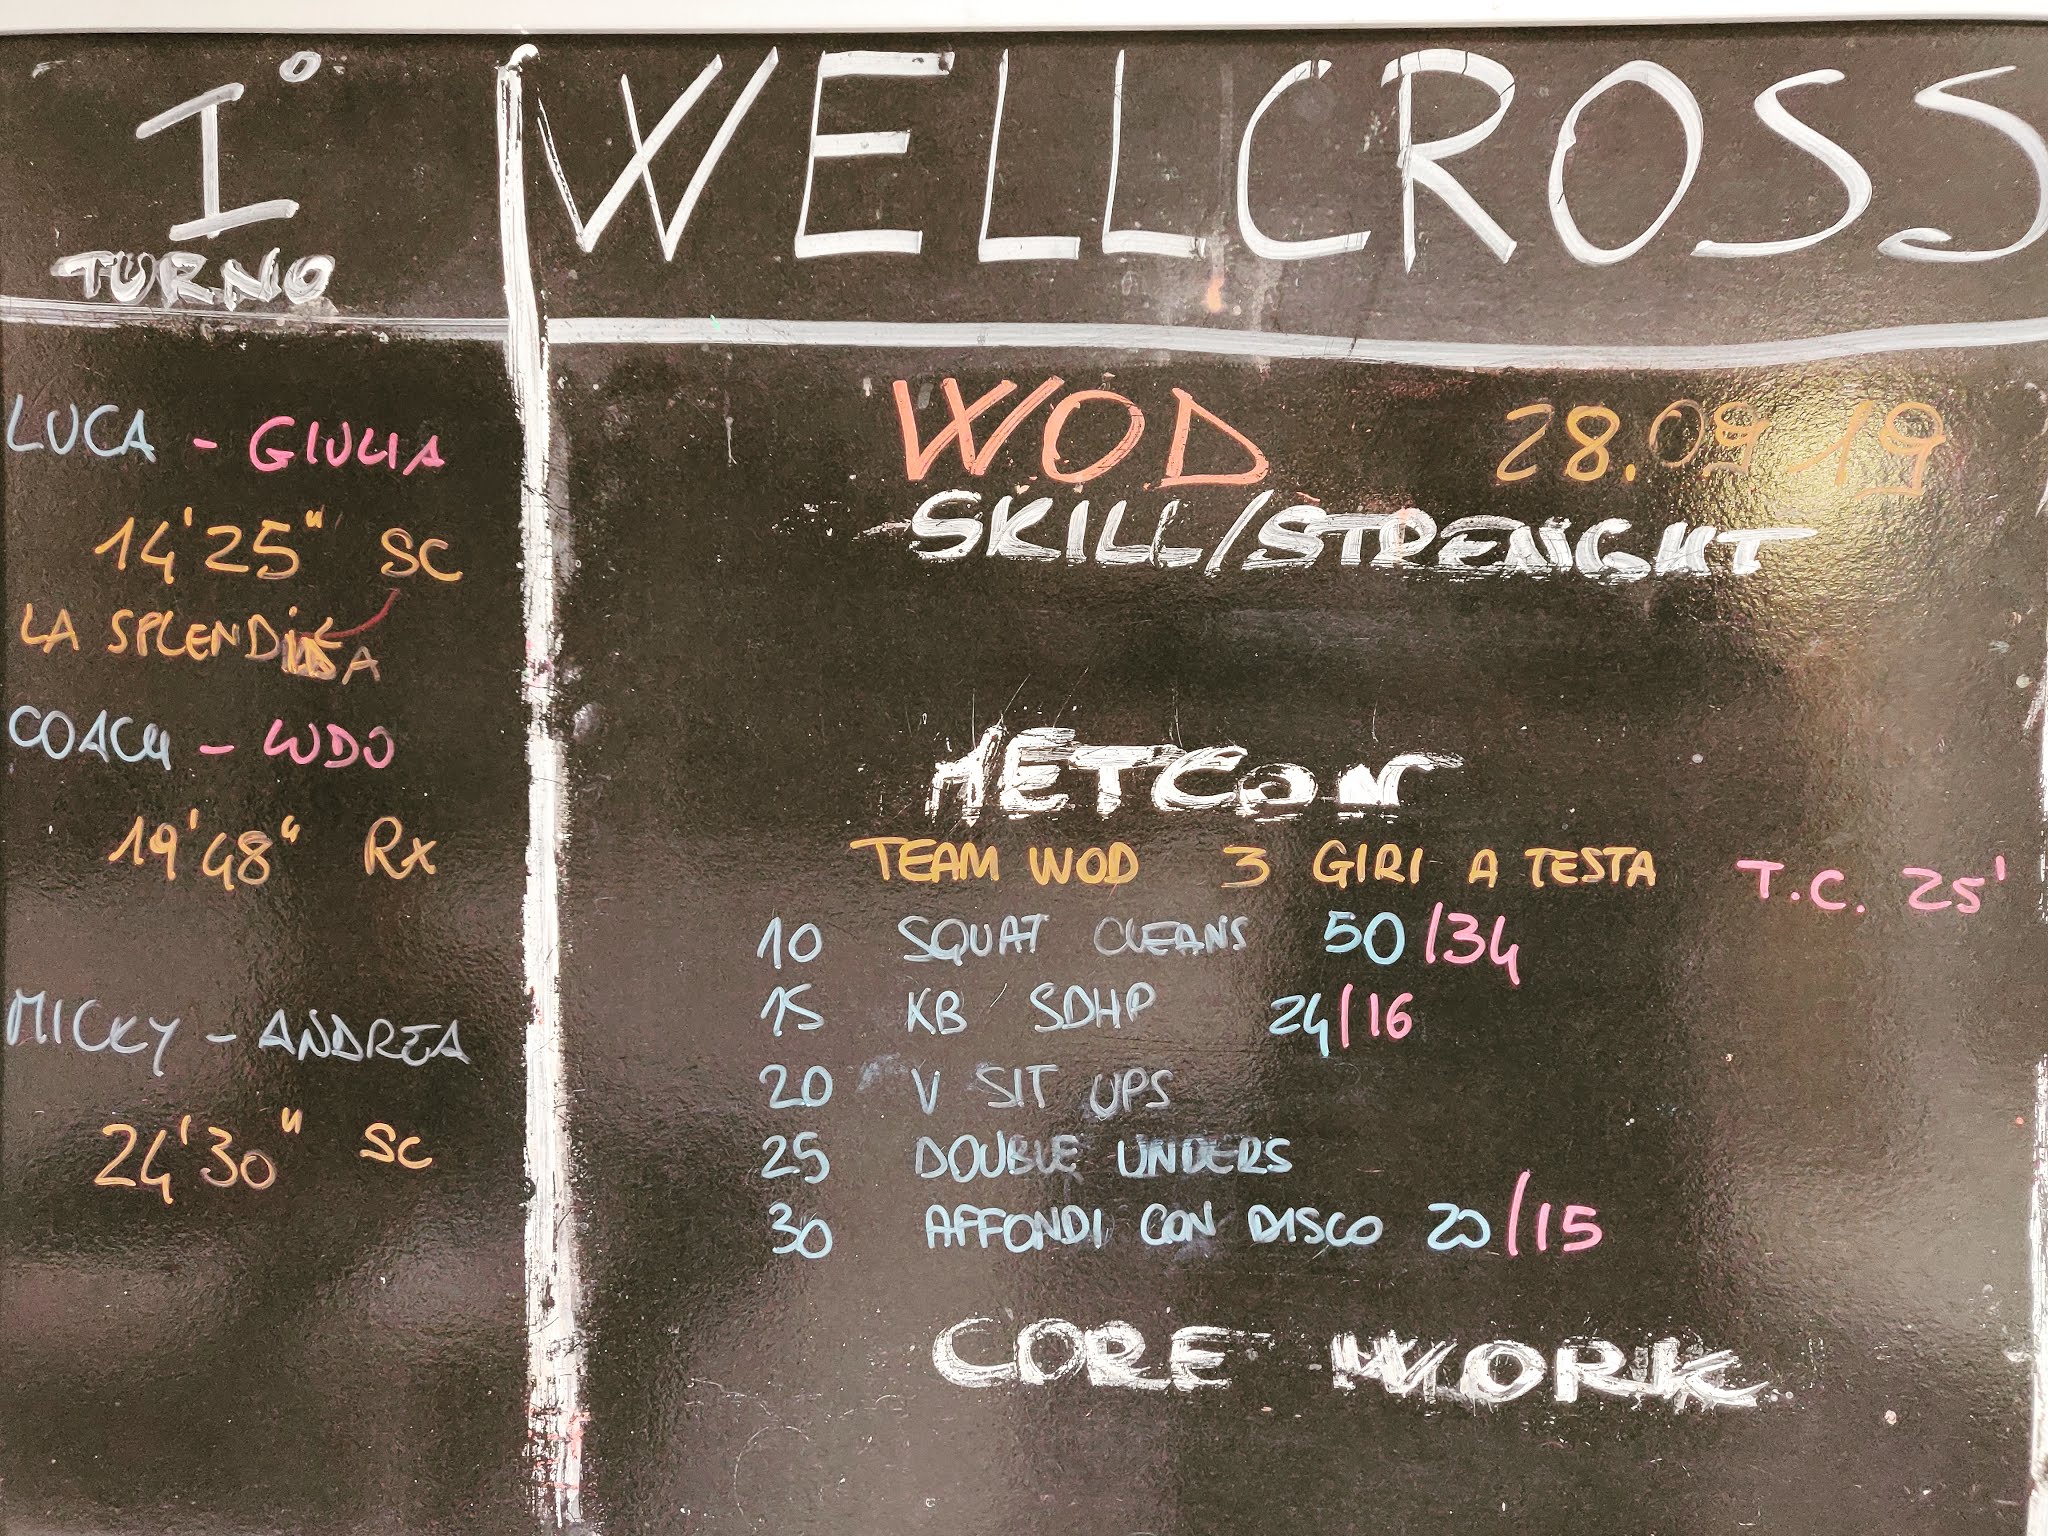 I°
TURNO
LUCA - GIULIA
14'25" SC
LA SPLENDIDA
COACH - LUDO
19'48" Rx
MICKY - ANDREA
24'30" SC
WELLCROSS
WOD 28.09.19
SKILL/STRENGHT
METCON
TEAM WOD 3 GIRI A TESTA T.C. 25'
10 SQUAT CLEANS 50/34
15 KB SDHP 24/16
20 V SIT UPS
25 DOUBLE UNDERS
30 AFFONDI CON DISCO 20/15
CORE WORK